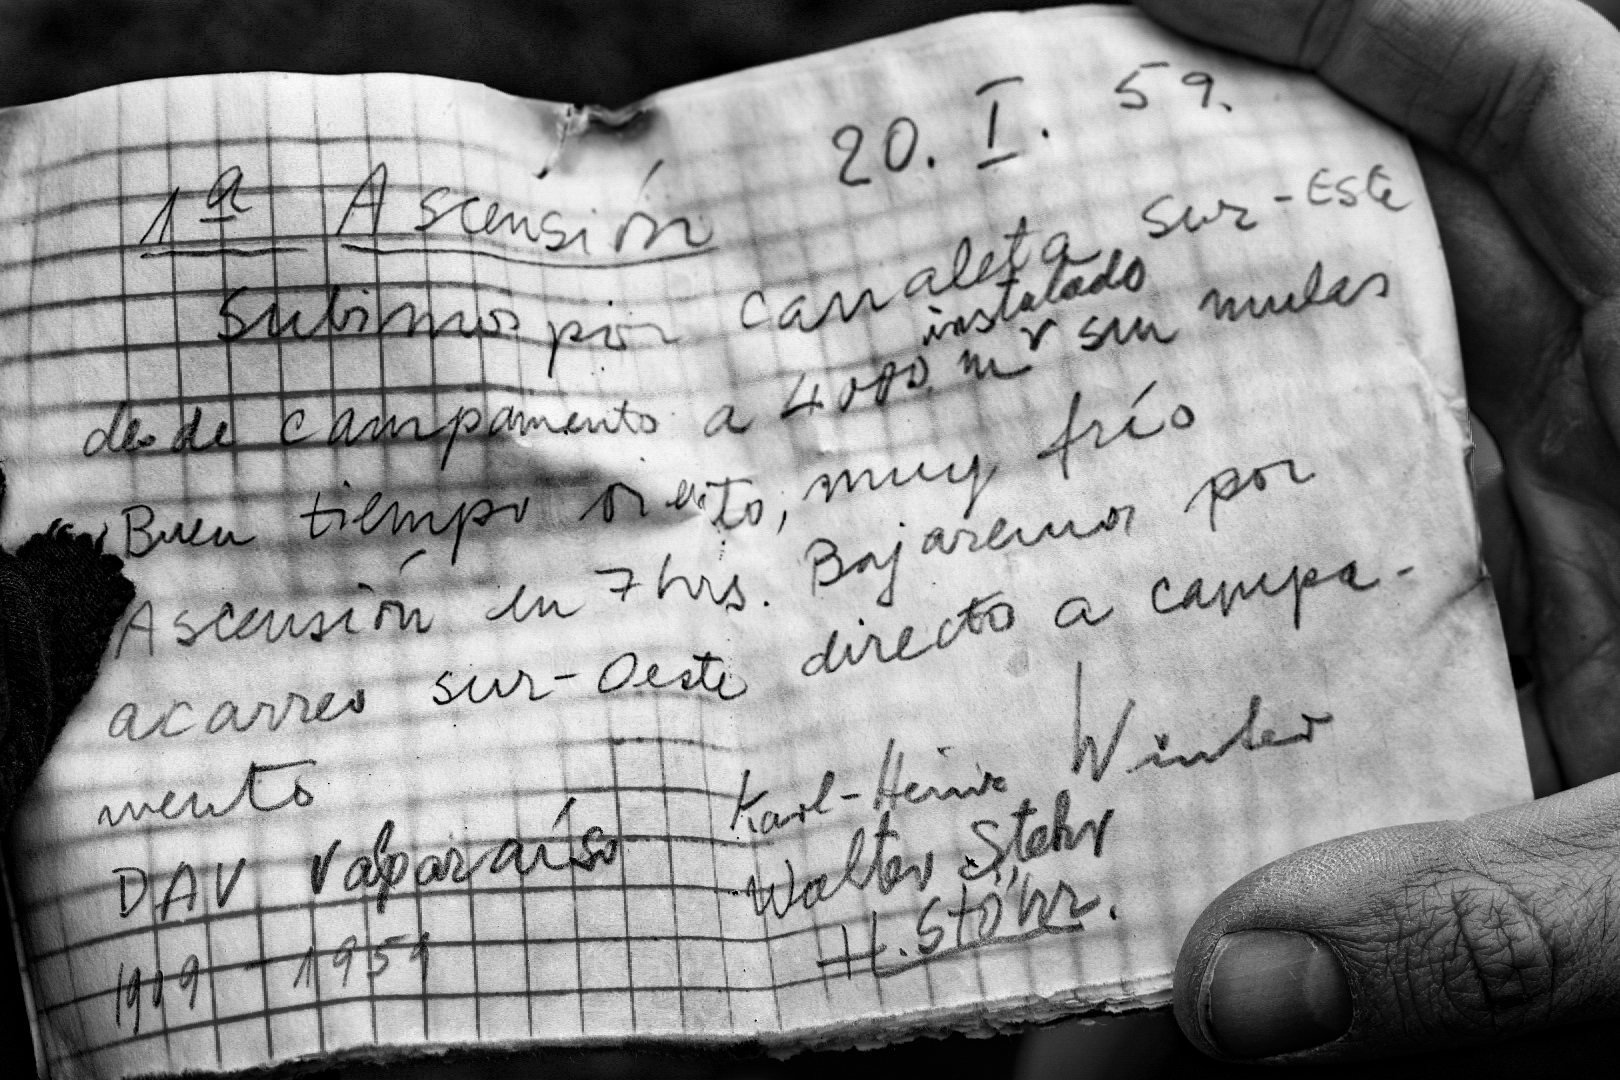 20. I. 59.
1ª Ascensión
Subimos por canaleta Sur-Este
instalado
desde campamento a 4000 m sin mulas
Buen tiempo viento, muy frío
Ascensión en 7 hrs. Bajaremos por
acarreo sur-Oeste directo a campa-
mento
Karl-Heinz Winter
DAV Valparaíso
Walter Stehr
H. Stöhr.
1909 - 1959